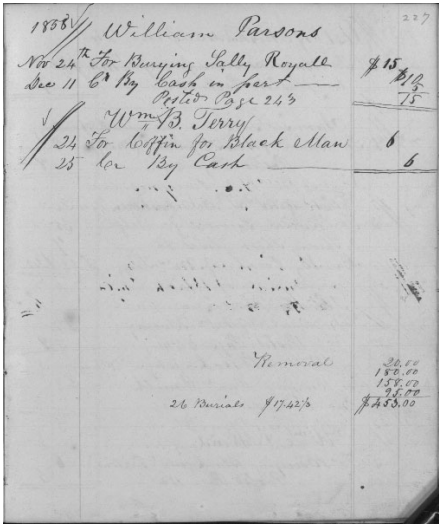 227
1858 William Parsons
Nov 24th For Burying Sally Royall $15
Dec 11 Cr By Cash in part $10
Posted Page 243 5
15
Wm B. Terry
24 For Coffin for Black Man 6
25 Cr By Cash 6
Removal 20.00
180.00
158.00
95.00
26 Burials $17.42⅓ $453.00